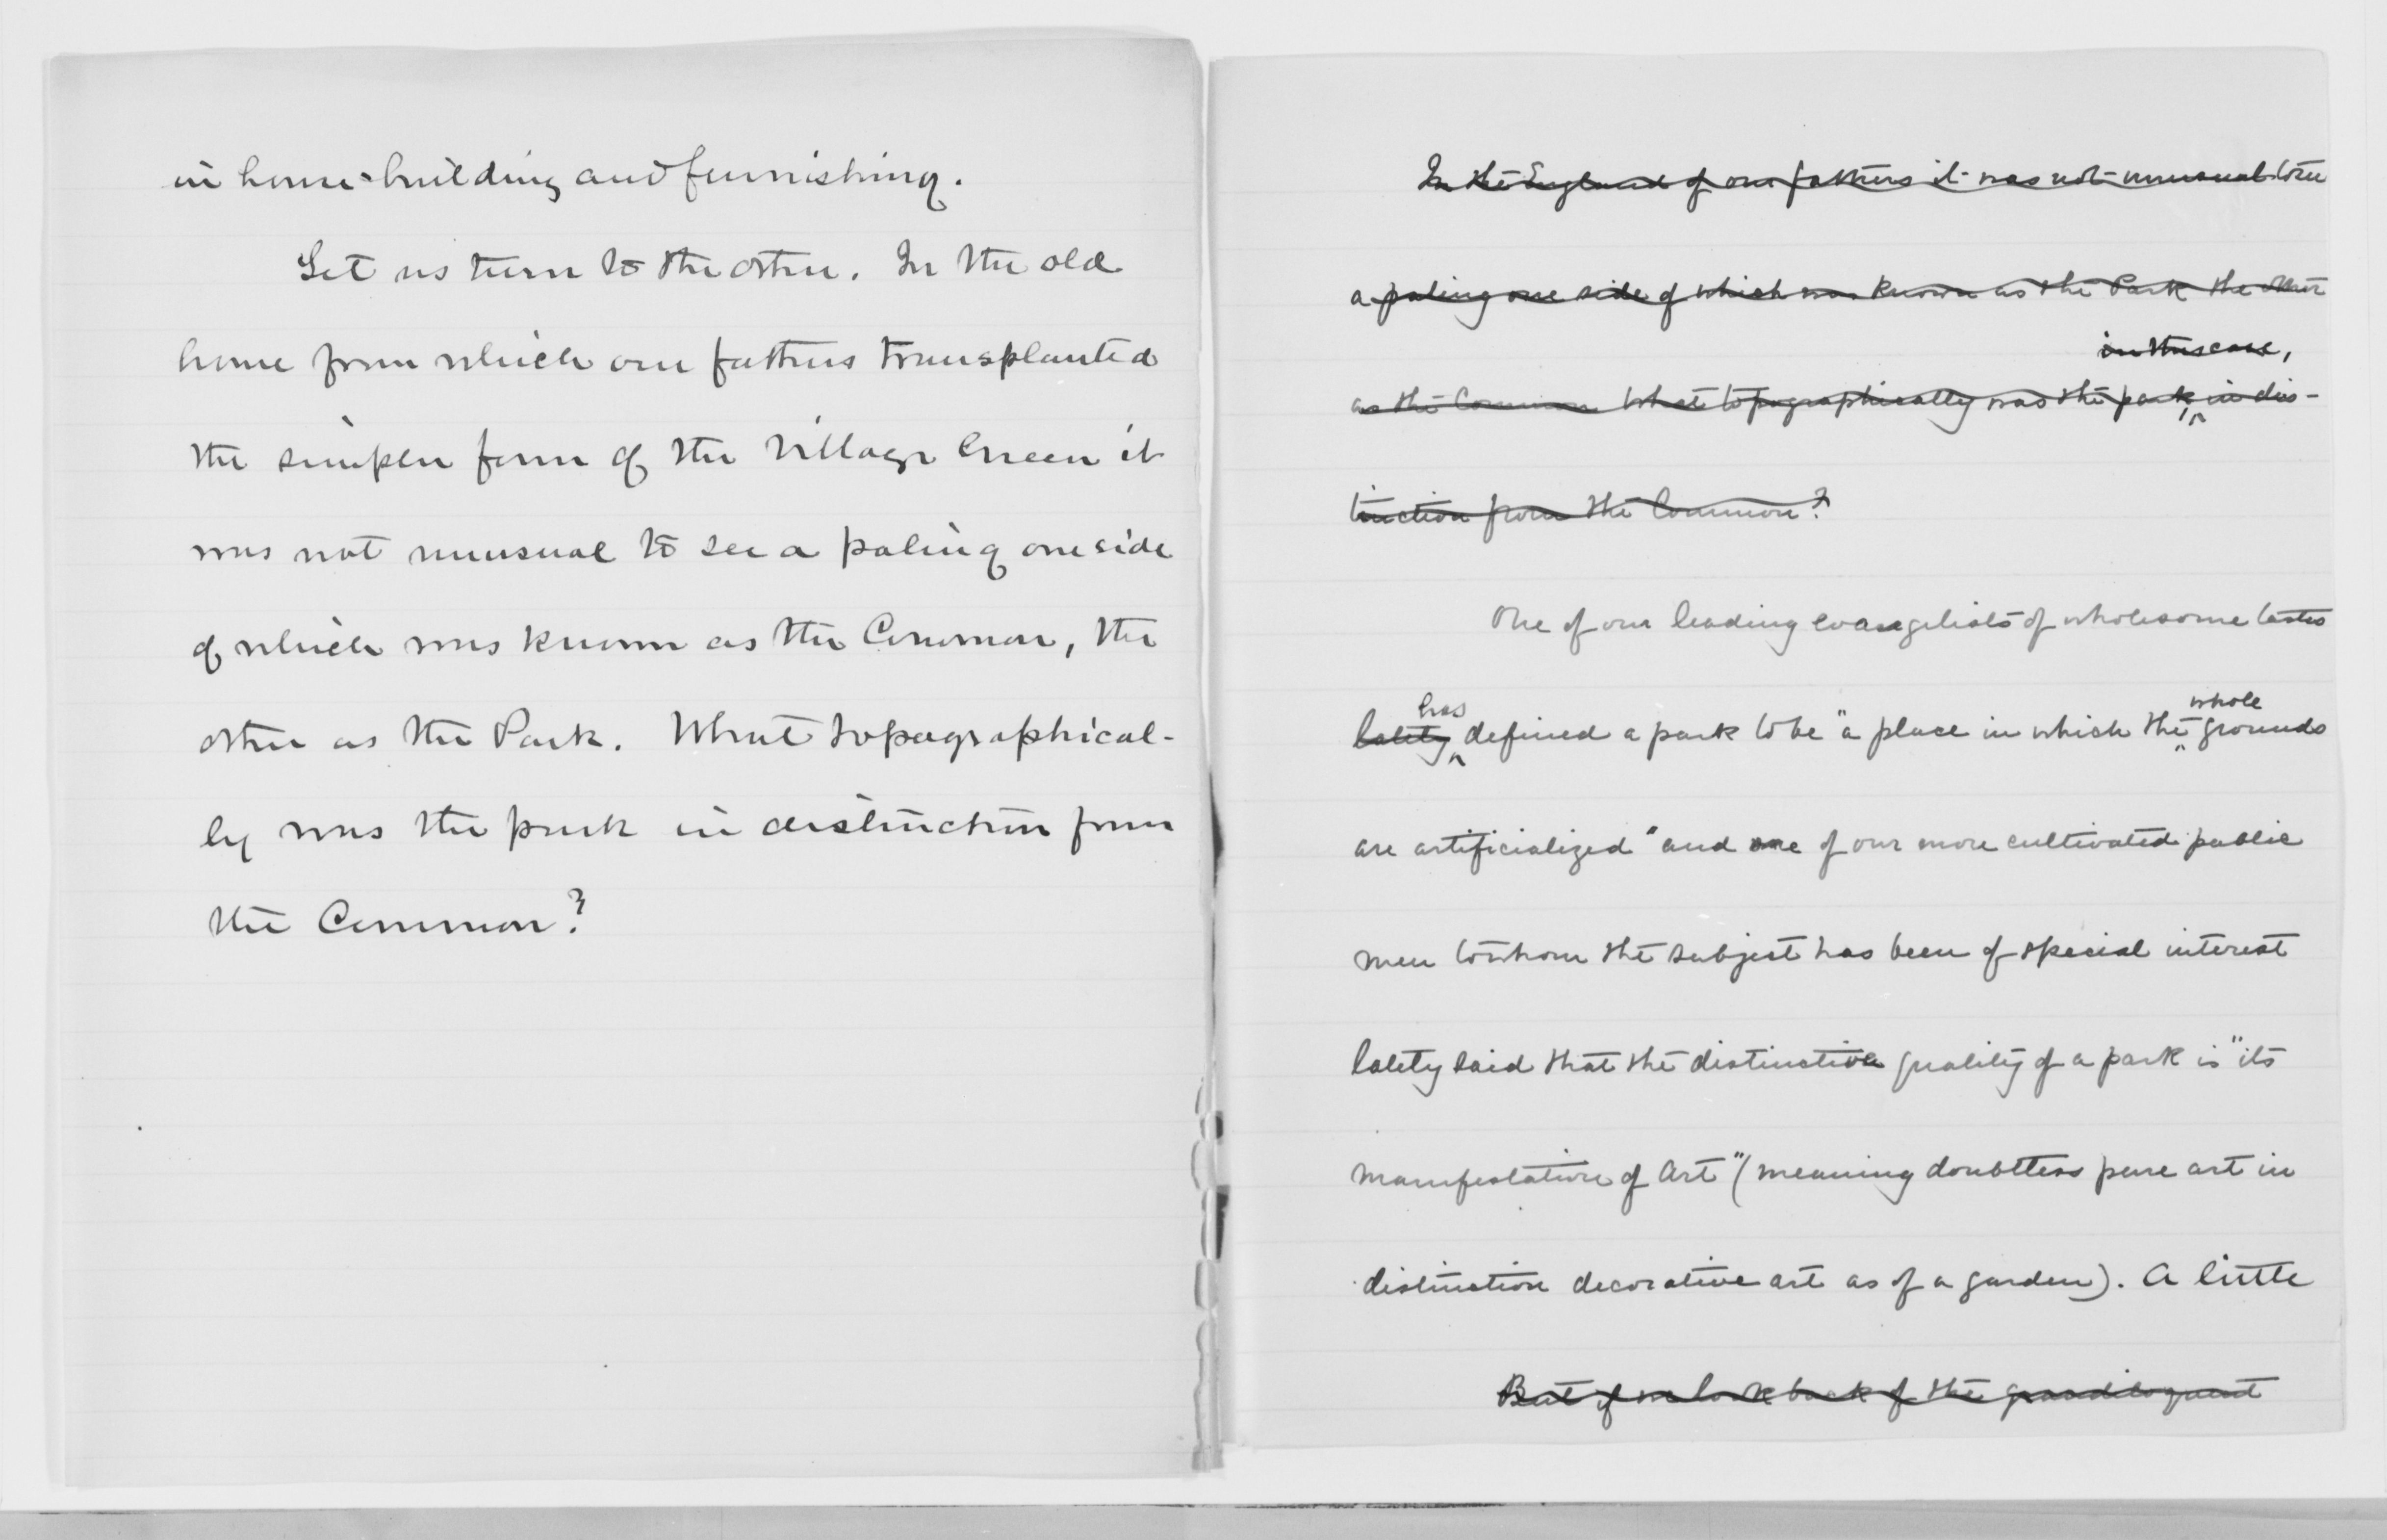 in house-building and furnishing.
Let us turn to the other. In the old
home from which our fathers transplanted
the simpler form of the Village Green it
was not unusual to see a paling one side
of which was known as the Common, the
other as the Park. What topographical-
ly was the park in distinction from
the Common?
In the England of our fathers it was not unusual to see
a paling one side of which was known as the Park the other
in this case,
as the Common What topographically was the park in dis-
tinction from the Common?
One of our leading evangelists of wholesome tastes
has whole
lately defined a park to be "a place in which the grounds
are artificialized" and one of our more cultivated public
men to whom the subject has been of special interest
lately said that the distinctive quality of a park is "its
manifestation of Art" (meaning doubtless pure art in
distinction decorative art as of a garden). A little
But if we look back of the grandiloquent